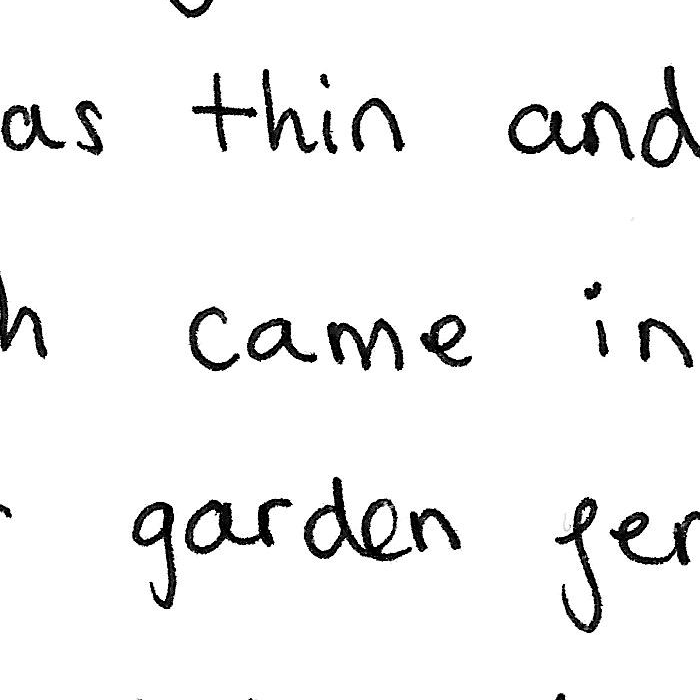 as thin and
h came in
garden fer